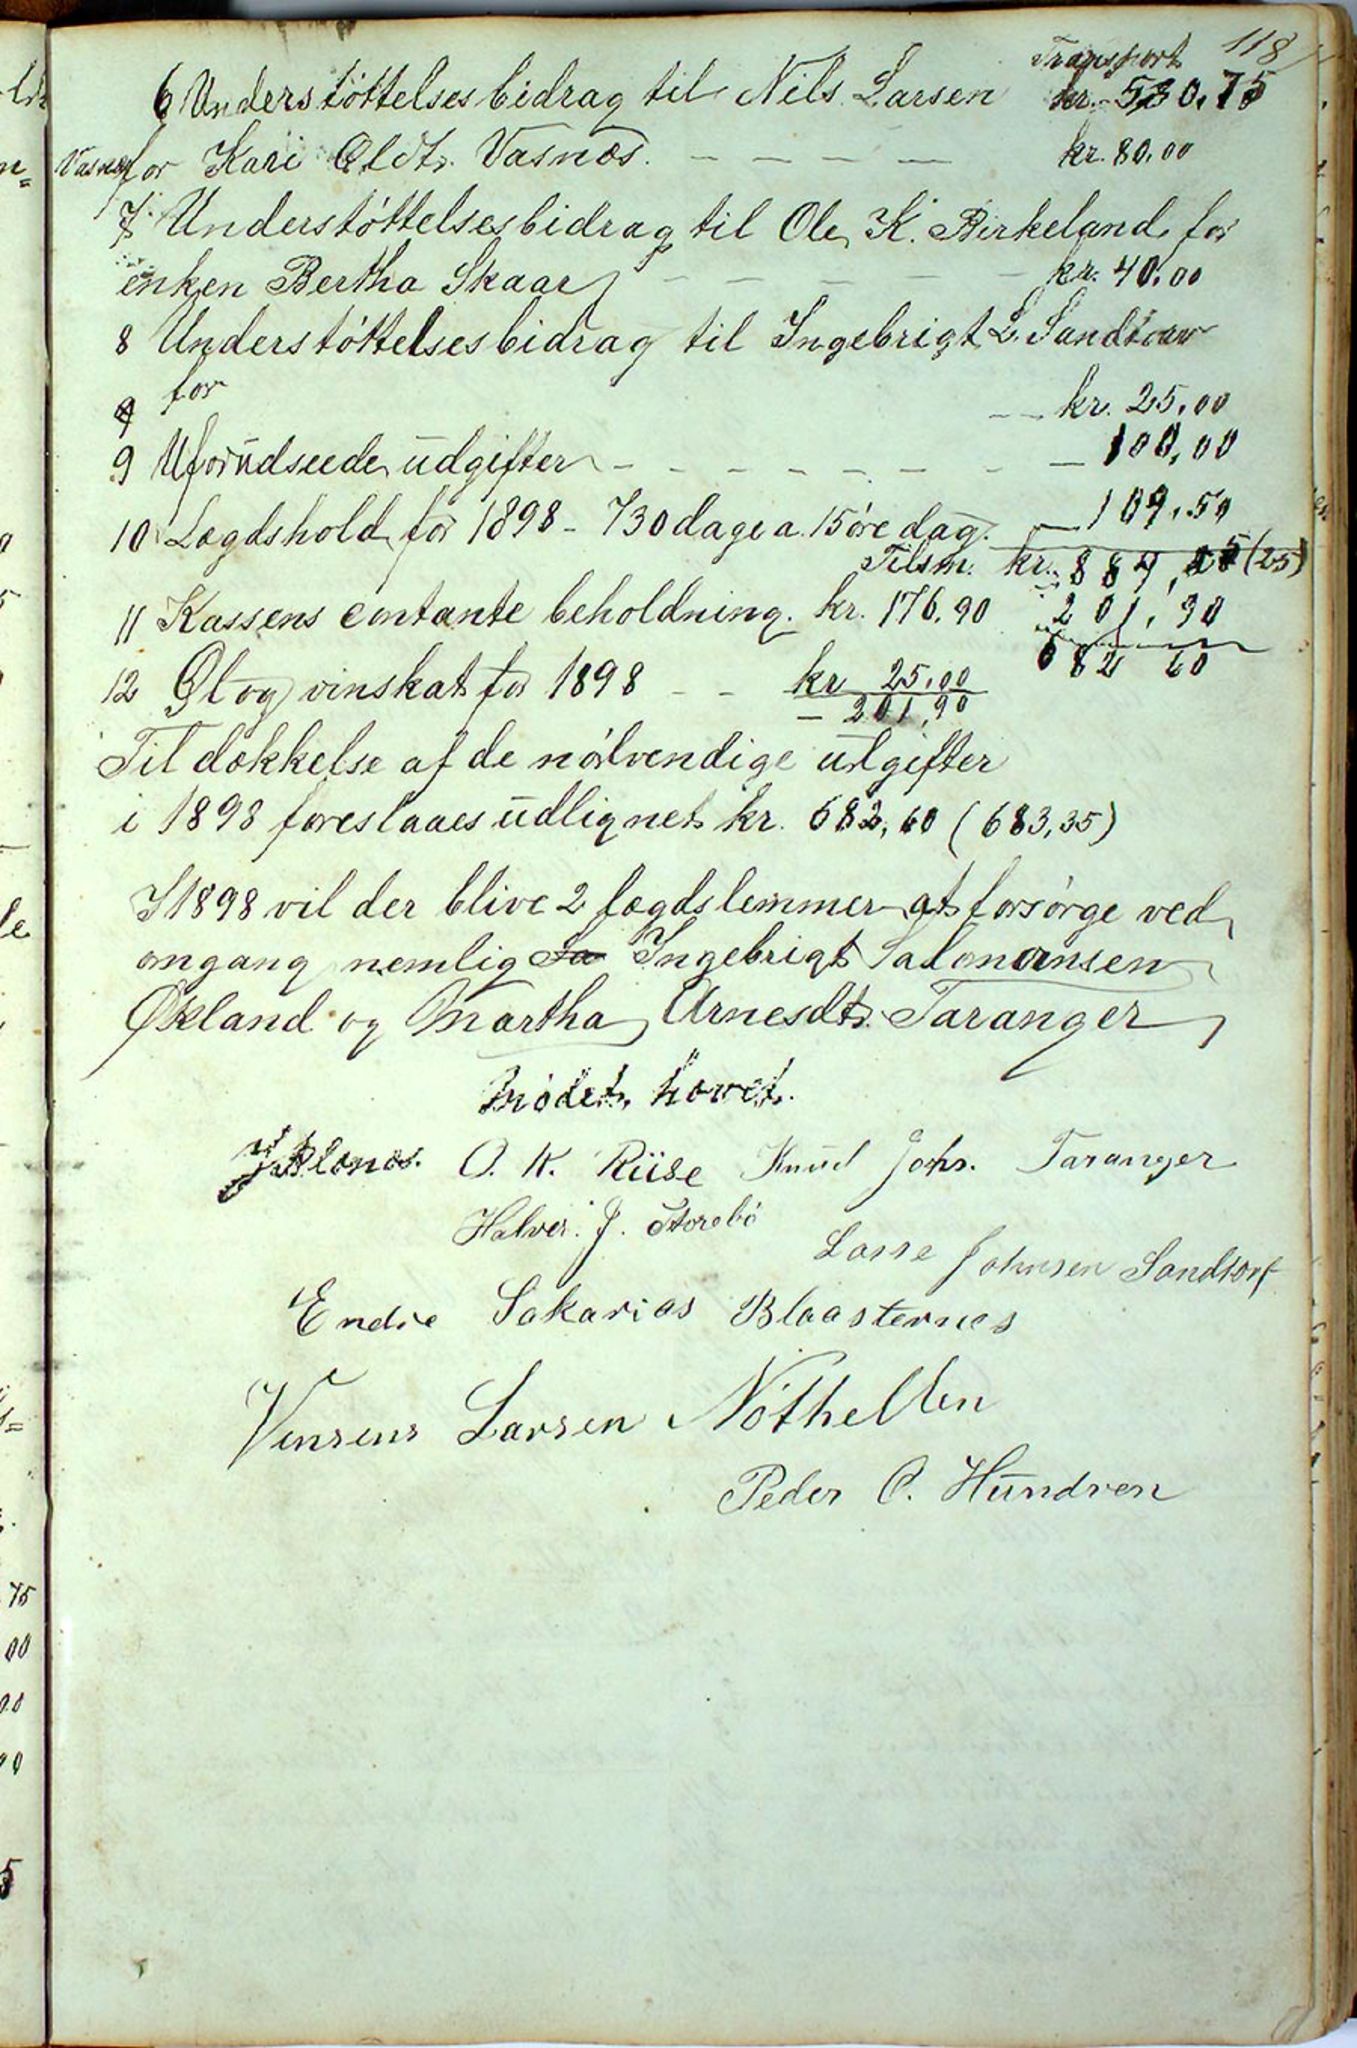 118
Transport
6 Understøttelsesbidrag til Nils Larsen kr. 530,75
Vasnæs for Kari Olsdtr. Vasnæs. — — — — kr. 80.00
7 Understøttelsesbidrag til Ole K. Birkeland for
enken Bertha Skaar — — — — kr. 40.00
8 Understøttelsesbidrag til Ingebrigt L. Sandtorv
for — — kr. 25.00
9 Uforudseede udgifter — — — — — — — — 100,00
10 Lægdshold for 1898 - 730 dage a. 15 øre dag. — 109.50
Tilsm. kr. 884, (25)
11 Kassens contante beholdning. kr. 176.90 201,90
682 60
12 Øl og vinskat for 1898 — — kr 25.00
— 201,90
Til dækkelse af de nødvendige udgifter
i 1898 foreslaaes udlignet kr. 682,60 (683,35)
I 1898 vil der blive 2 lægdslemmer at forsørge ved
omgang nemlig Ingebrigt Salomonsen
Økland og Martha Arnesdtr. Taranger
Mødet hævet.
O. K. Riise Knud Johs. Taranger
Halvor J. Storebø
Lasse Johnsen Sandtorf
Endre Sakarias Blaasternes
Vinsens Larsen Nöthellen
Peder O. Hundven
75
00